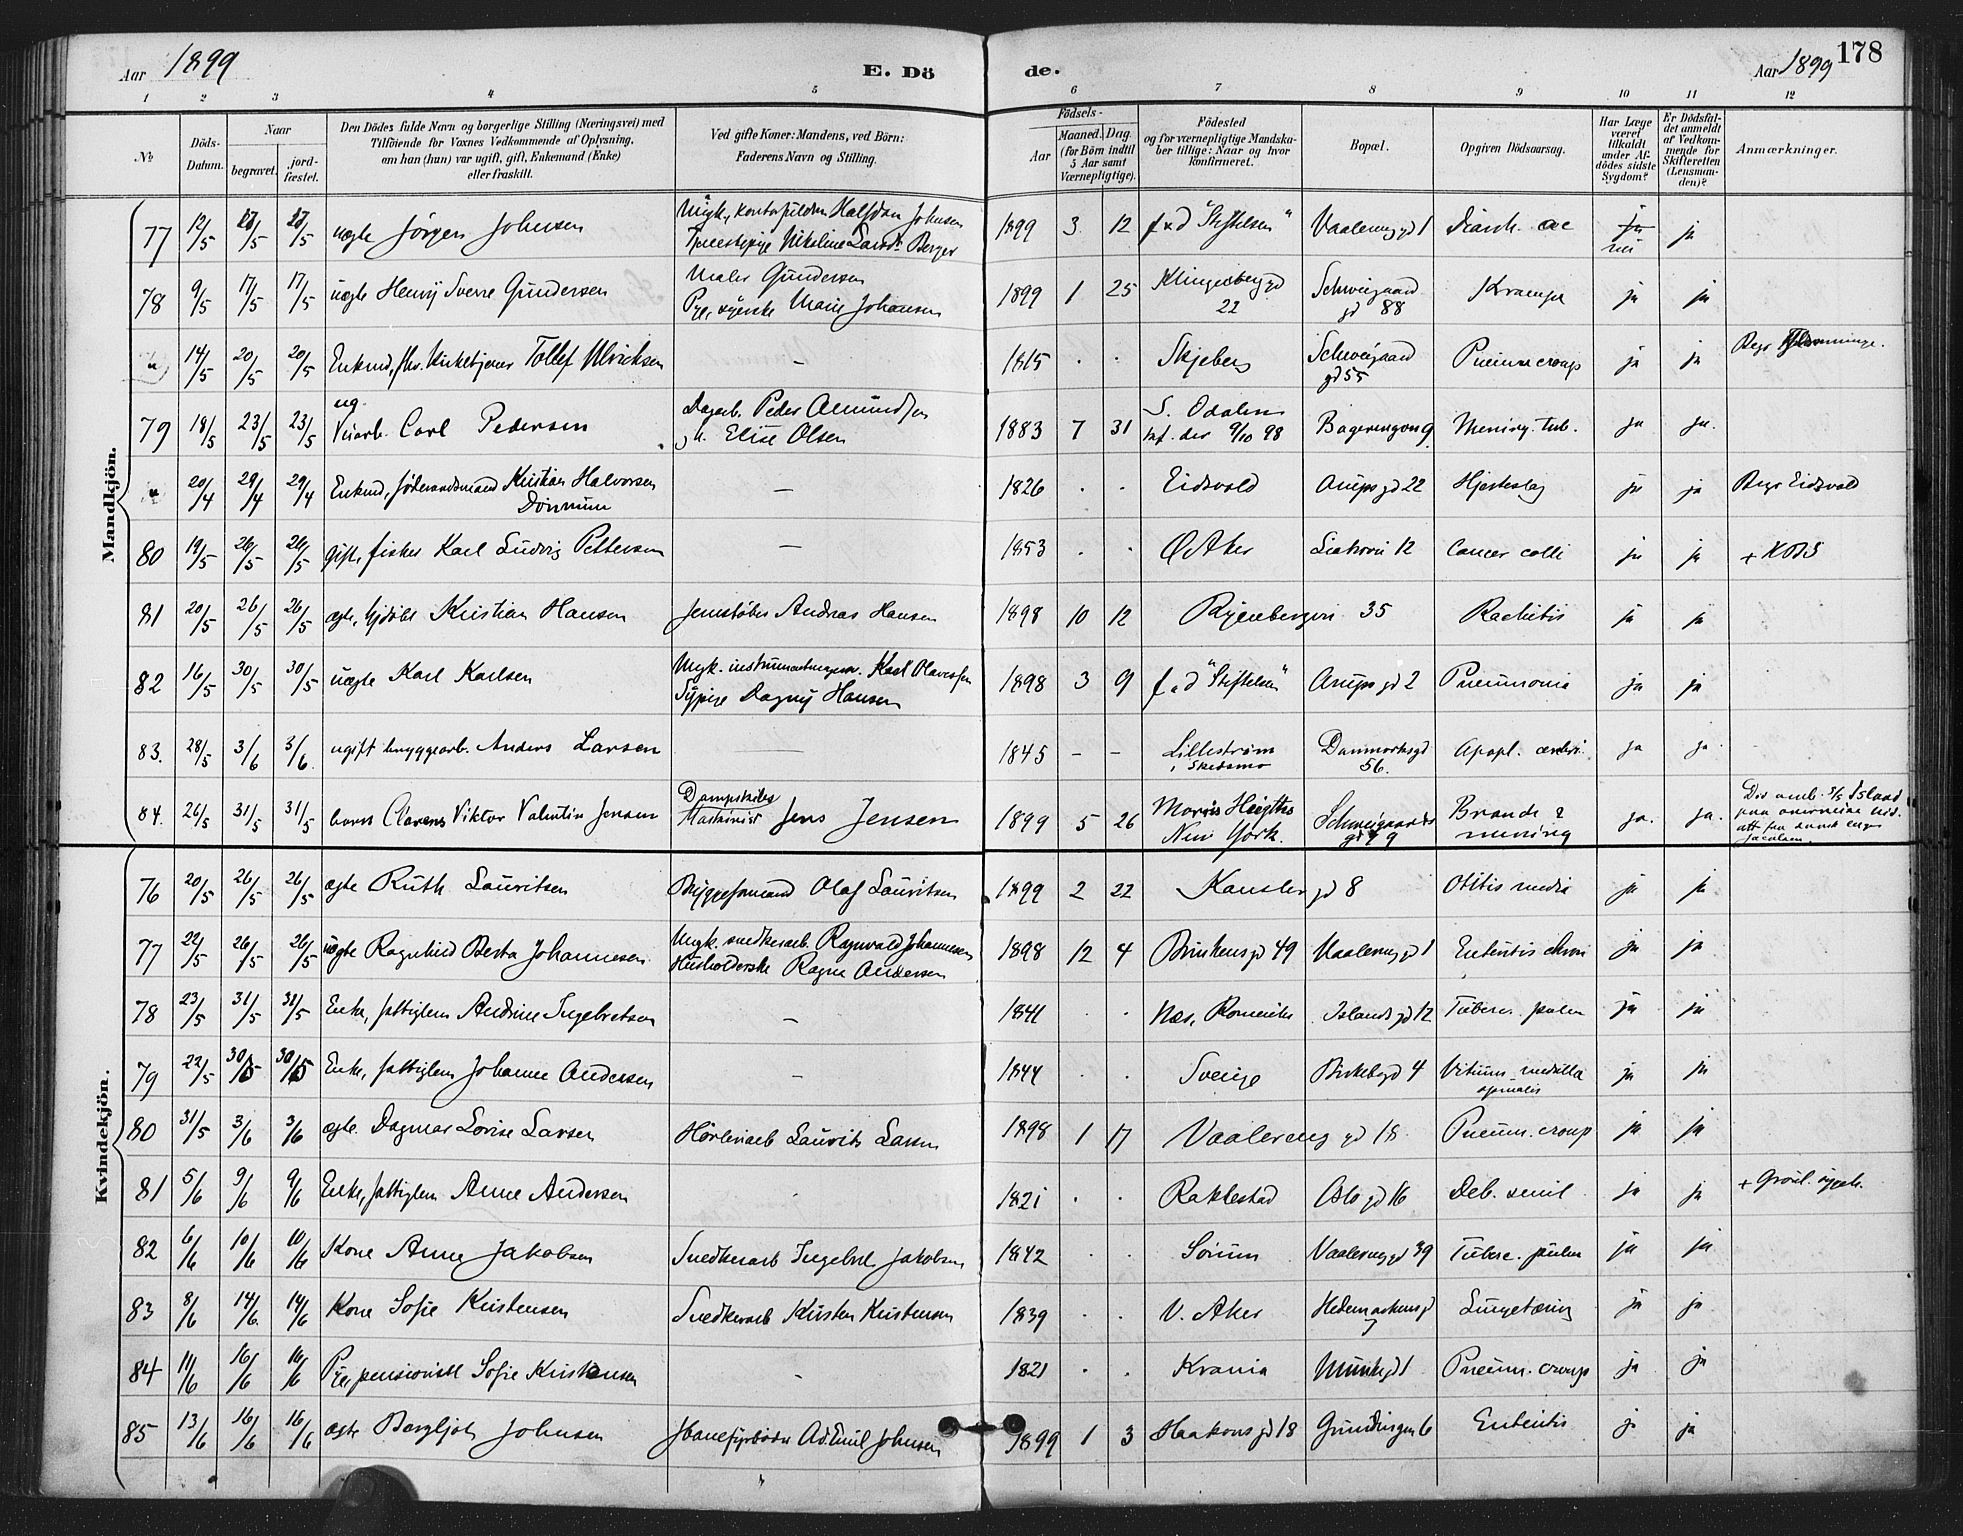 Aar 1899
E. Dö
de.
Aar 1899
178
1 2 3 4 5 6 7 8 9 10 11 12
№
Döds-Datum.
Naar
begravet.
jord-fæstet.
Den Dödes fulde Navn og borgerlige Stilling (Næringsvei) med
Tilföiende for Voxnes Vedkommende af Oplysning,
om han (hun) var ugift, gift, Enkemand (Enke)
eller fraskilt.
Ved gifte Koner: Mandens, ved Börn:
Faderens Navn og Stilling.
Födsels-
Aar
Maaned. Dag.
(for Börn indtil
5 Aar samt
Værnepligtige).
Födested
og for værnepligtige Mandska-
ber tillige: Naar og hvor
konfirmeret.
Bopæl.
Opgiven Dödsaarsag.
Har Læge
været
tilkaldt
under Af-
dödes sidste
Sygdom?
Er Dödsfal-
det anmeldt
af Vedkom-
mende for
Skifteretten
(Lensman-
den)?
Anmærkninger.
Mandkjön.
77 12/5 /5 /5 uægte Jörgen Johnsen Ungk, Halfdan Johnsen
Nikoline Berger 1899 3 12 f a d "Stiftelsen" Vaalereng gd 1 ja nei ja
78 9/5 17/5 17/5 uægte Henry Sverre Gundersen Maler Gundersen
Pge, syerske Marie Johansen 1899 1 25 Klingenberg gd 22 Schweigaard gd 88 Krampe ja ja
" 14/5 20/5 20/5 Enkmd, fhv. Kirketjener Tollef Ulriksen – 1815 . . Skjeberg Schweigaard gd 55 Pneum croup ja ja Begr
79 18/5 23/5 23/5 ug. Carl Pedersen Dagarb. Peder Amundsen
og h. Elise Olsen 1883 7 31 S. Odalen
knf. der 9/10 98 9 Mening. tub. ja ja.
" 20/4 29/4 29/4 Enkmd, föderaadsmand Kristian Halvorsen
– 1826 . . Eidsvold Arups gd 22 Hjerteslag ja ja Begr Eidsvold
80 19/5 26/5 26/5 gift, fisker Karl Ludvig Pettersen – 1853 . . Ø Aker 12 Cancer colli ja ja
81 20/5 26/5 26/5 ægte, Kristian Hansen Jernstöber Andreas Hansen 1898 10 12 Ryenbergvei 35 Rachitis ja ja
82 16/5 30/5 30/5 uægte Karl Karlsen Ungk. Karl Olavessen
Sypige Dagny Hansen 1898 3 9 f a d "Stiftelsen" Arups gd 2 Pneumonia ja ja
83. 28/5 3/6 3/6. ugift bryggearb. Anders Larsen – 1845 – – Lilleström
i Skedsmo Danmarksgd 56. Apopl. cerebri. ja ja.
84. 26/5 31/5 31/5 barn Clarens Viktor Valentin Jensen Dampskibs
Maskinist Jens Jensen 1899 5 26 Morris Heigths
New York. Schweigaards gd 79 mening ja. ja.
Kvindekjön.
76 20/5 26/5 26/5 ægte Ruth Lauritsen Bryggeformand Olaf Lauritsen 1899 2 22 Kansler gd 8 Otitis media ja ja
77 22/5 26/5 26/5 uægte Ragnhild Berta Johannesen Ungk. snedkerarb. Ragnvald Johannesen
Husholderske Ragna Andersen 1898 12 4 Brinkens gd 49 Vaalereng gd 1 Enteritis chron ja ja
78 23/5 31/5 31/5 Enke, fattiglem Andrine Ingebretsen – 1841 . . Nes, Romerike Islands gd 12 Tuberc. pulm ja ja
79 22/5 30/5 30/5 Enke, fattiglem Johanne Andersen – 1844 . . Sverige Birkebgd 4 Vitium medulla
spinalis ja ja
80 31/5 3/6 3/6 ægte Dagmar Lovise Larsen Laurits Larsen 1898 1 17 Vaalereng gd 18 Pneum. croup ja ja
81 5/6 9/6 9/6 Enke, fattiglem Anne Andersen . 1821 . . Rakkestad Oslo gd 16 Deb. senil ja ja
82 6/6 10/6 10/6 Kone Anne Jakobsen Snedkerarb Ingebret Jakobsen 1842 . . Sörum Vaalereng gd 39 Tuberc. pulm ja ja
83 8/6 14/6 14/6 Kone Sofie Kristensen Snedkerarb Kristen Kristensen 1839 . . V. Aker Hedemarkens gd 7 Lungetæring ja ja
84 11/6 16/6 16/6 Pge, pensionist Sofie Kristensen – 1821 . . Krania Munkegd 1 Pneum. croup ja ja
85 13/6 16/6 16/6 ægte Bergljot Johnsen Jbanefyrböder Ad. Emil Johnsen 1899 1 3 Haakons gd 18 Gründingen 6 Enteritis ja ja